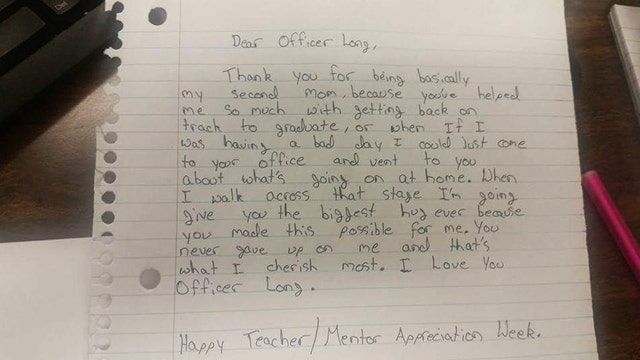 Dear Officer Long,
Thank you for being basically
my second mom, because youve helped
me so much with getting back on
track to graduate, or when If I
was having a bad day I could Just come
to your office and vent to you
about what's going on at home. When
I walk across that stage I'm going
give you the biggest hug ever because
you made this possible for me. You
never gave up on me and that's
what I cherish most. I Love You
Officer Long.
Happy Teacher/Mentor Appreciation Week.